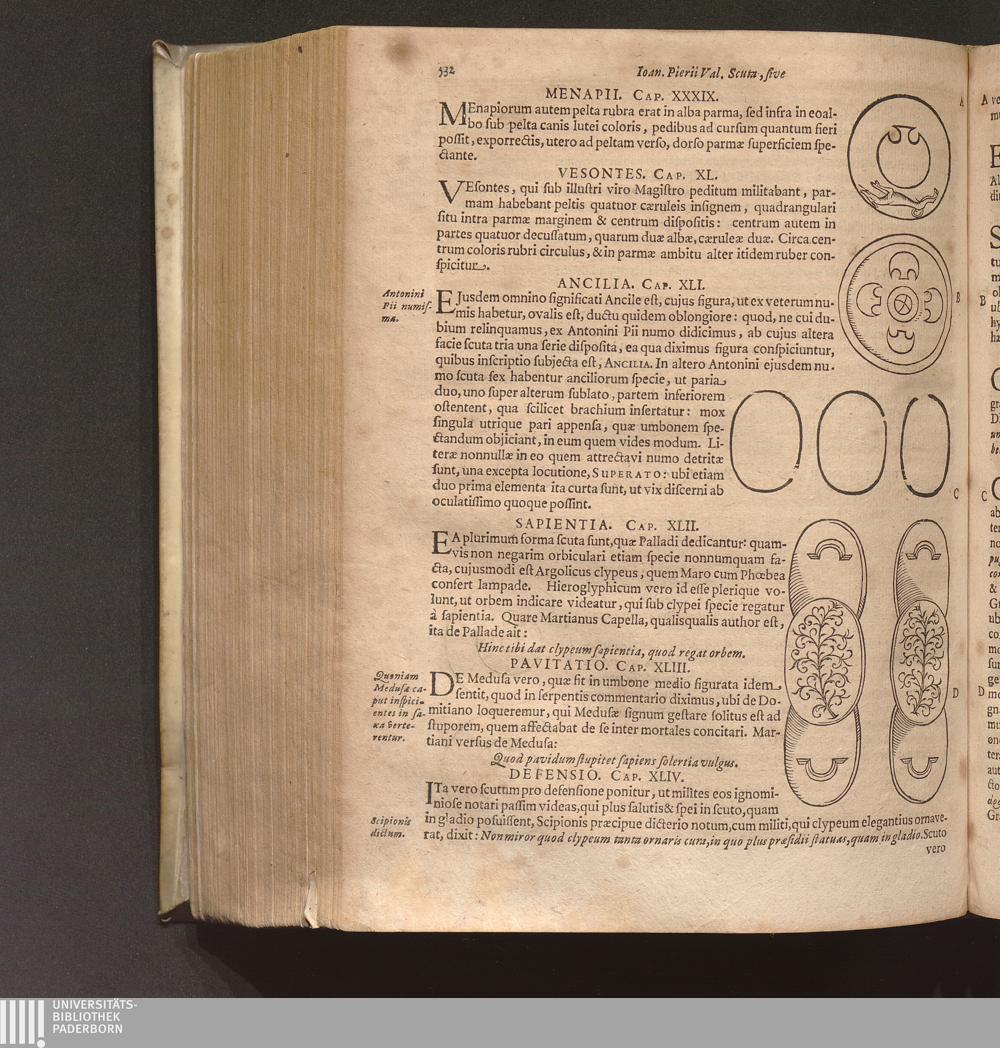 532
Ioan. Pierii Val. Scuta, ſive
MENAPII. CAP. XXXIX.
MEnapiorum autem pelta rubra erat in alba parma, ſed infra in eo al-
bo ſub pelta canis lutei coloris, pedibus ad curſum quantum fieri
poſſit, exporrectis, utero ad peltam verſo, dorſo parmæ ſuperficiem ſpe-
ctante.
VESONTES. CAP. XL.
VEſontes, qui ſub illuſtri viro Magiſtro peditum militabant, par-
mam habebant peltis quatuor cæruleis inſignem, quadrangulari
ſitu intra parmæ marginem & centrum diſpoſitis: centrum autem in
partes quatuor decuſſatum, quarum duæ albæ, cæruleæ duæ. Circa cen-
trum coloris rubri circulus, & in parmæ ambitu alter itidem ruber con-
ſpicitur.
ANCILIA. CAP. XLI.
Antonini
Pii numiſ-
ma.
EJusdem omnino ſignificati Ancile eſt, cujus figura, ut ex veterum nu-
mis habetur, ovalis eſt, ductu quidem oblongiore: quod, ne cui du-
bium relinquamus, ex Antonini Pii numo didicimus, ab cujus altera
facie ſcuta tria una ſerie diſpoſita, ea qua diximus figura conſpiciuntur,
quibus inſcriptio ſubjecta eſt, ANCILIA. In altero Antonini ejusdem nu-
mo ſcuta ſex habentur anciliorum ſpecie, ut paria
duo, uno ſuper alterum ſublato, partem inferiorem
oſtentent, qua ſcilicet brachium inſertatur: mox
ſingula utrique pari appenſa, quæ umbonem ſpe-
ctandum objiciant, in eum quem vides modum. Li-
teræ nonnullæ in eo quem attrectavi numo detritæ
ſunt, una excepta locutione, SUPERATO: ubi etiam
duo prima elementa ita curta ſunt, ut vix diſcerni ab
oculatiſſimo quoque poſſint.
SAPIENTIA. CAP. XLII.
EA plurimum forma ſcuta ſunt, quæ Palladi dedicantur: quam-
vis non negarim orbiculari etiam ſpecie nonnumquam fa-
cta, cujusmodi eſt Argolicus clypeus, quem Maro cum Phœbea
confert lampade. Hieroglyphicum vero id eſſe plerique vo-
lunt, ut orbem indicare videatur, qui ſub clypei ſpecie regatur
à ſapientia. Quare Martianus Capella, qualisqualis author eſt,
ita de Pallade ait:
Hinc tibi dat clypeum ſapientia, quod regat orbem.
PAVITATIO. CAP. XLIII.
Quoniam
Meduſæ ca-
put inſpici-
entes in ſa-
xa verte-
rentur.
DE Meduſa vero, quæ fit in umbone medio figurata idem
ſentit, quod in ſerpentis commentario diximus, ubi de Do-
mitiano loqueremur, qui Meduſæ ſignum geſtare ſolitus eſt ad
ſtuporem, quem affectabat de ſe inter mortales concitari. Mar-
tiani verſus de Meduſa:
Quod pavidum ſtupitet ſapiens ſolertia vulgus.
DEFENSIO. CAP. XLIV.
ITa vero ſcutum pro defenſione ponitur, ut milites eos ignomi-
nioſe notari paſſim videas, qui plus ſalutis & ſpei in ſcuto, quam
Scipionis
dictum.
in gladio poſuiſſent, Scipionis præcipue dicterio notum, cum militi, qui clypeum elegantius ornave-
rat, dixit: Non miror quod clypeum tanta ornaris cura, in quo plus præſidii ſtatuas, quam in gladio. Scuto
vero
A
B
C
D
UNIVERSITÄTS-
BIBLIOTHEK
PADERBORN